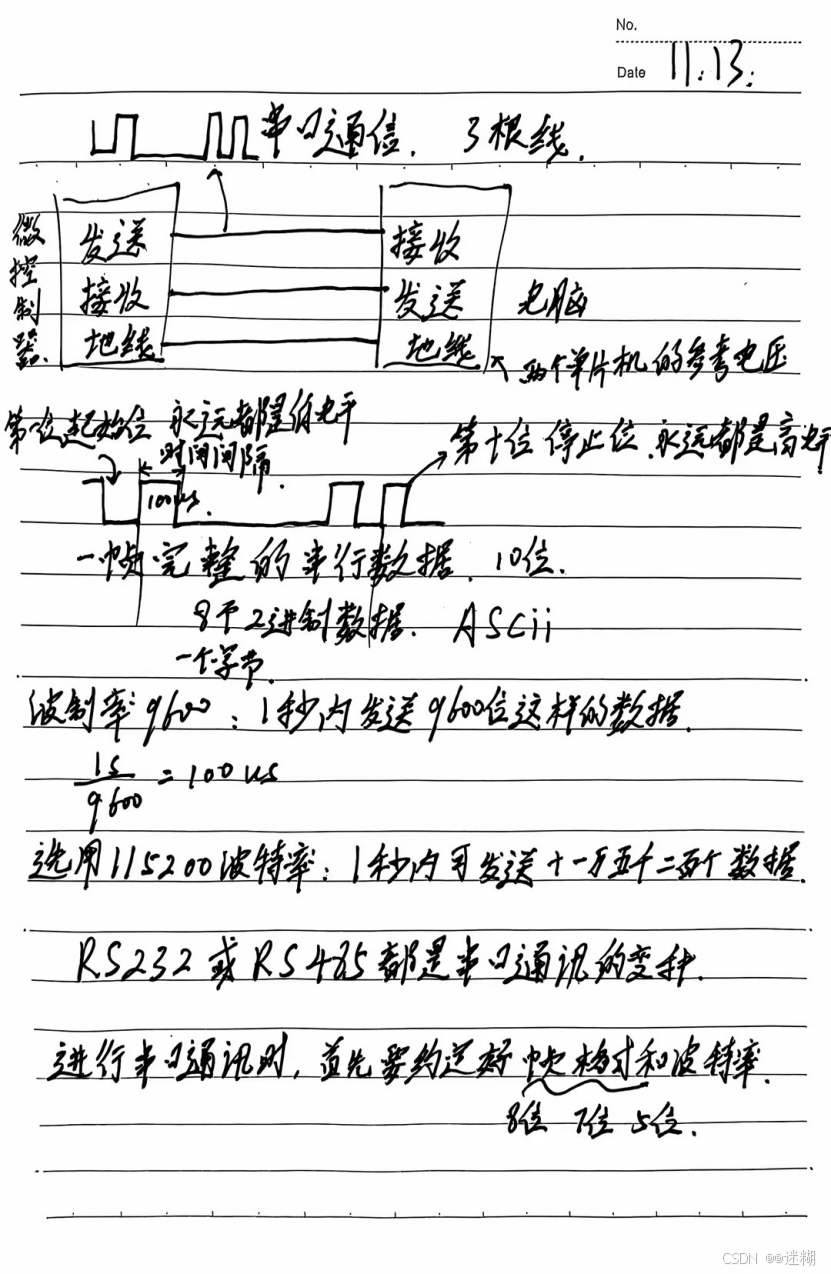 No.
Date 11.13.
串口通信. 3根线.
微控制器.
发送 接收
接收 发送 电脑
地线 地线 两个单片机的参考电压
第一位起始位 永远都是低电平
第十位 停止位.永远都是高电平
时间间隔.
100us.
一帧完整的串行数据. 10位.
8个2进制数据. AScii
一个字节.
波制率9600：1秒内发送9600位这样的数据.
1s/9600 = 100us
选用115200波特率：1秒内可发送十一万五千二百个数据.
RS232或RS485都是串口通讯的变种.
进行串口通讯时，首先要约定好帧格式和波特率.
8位 7位 5位.
CSDN @@迷糊